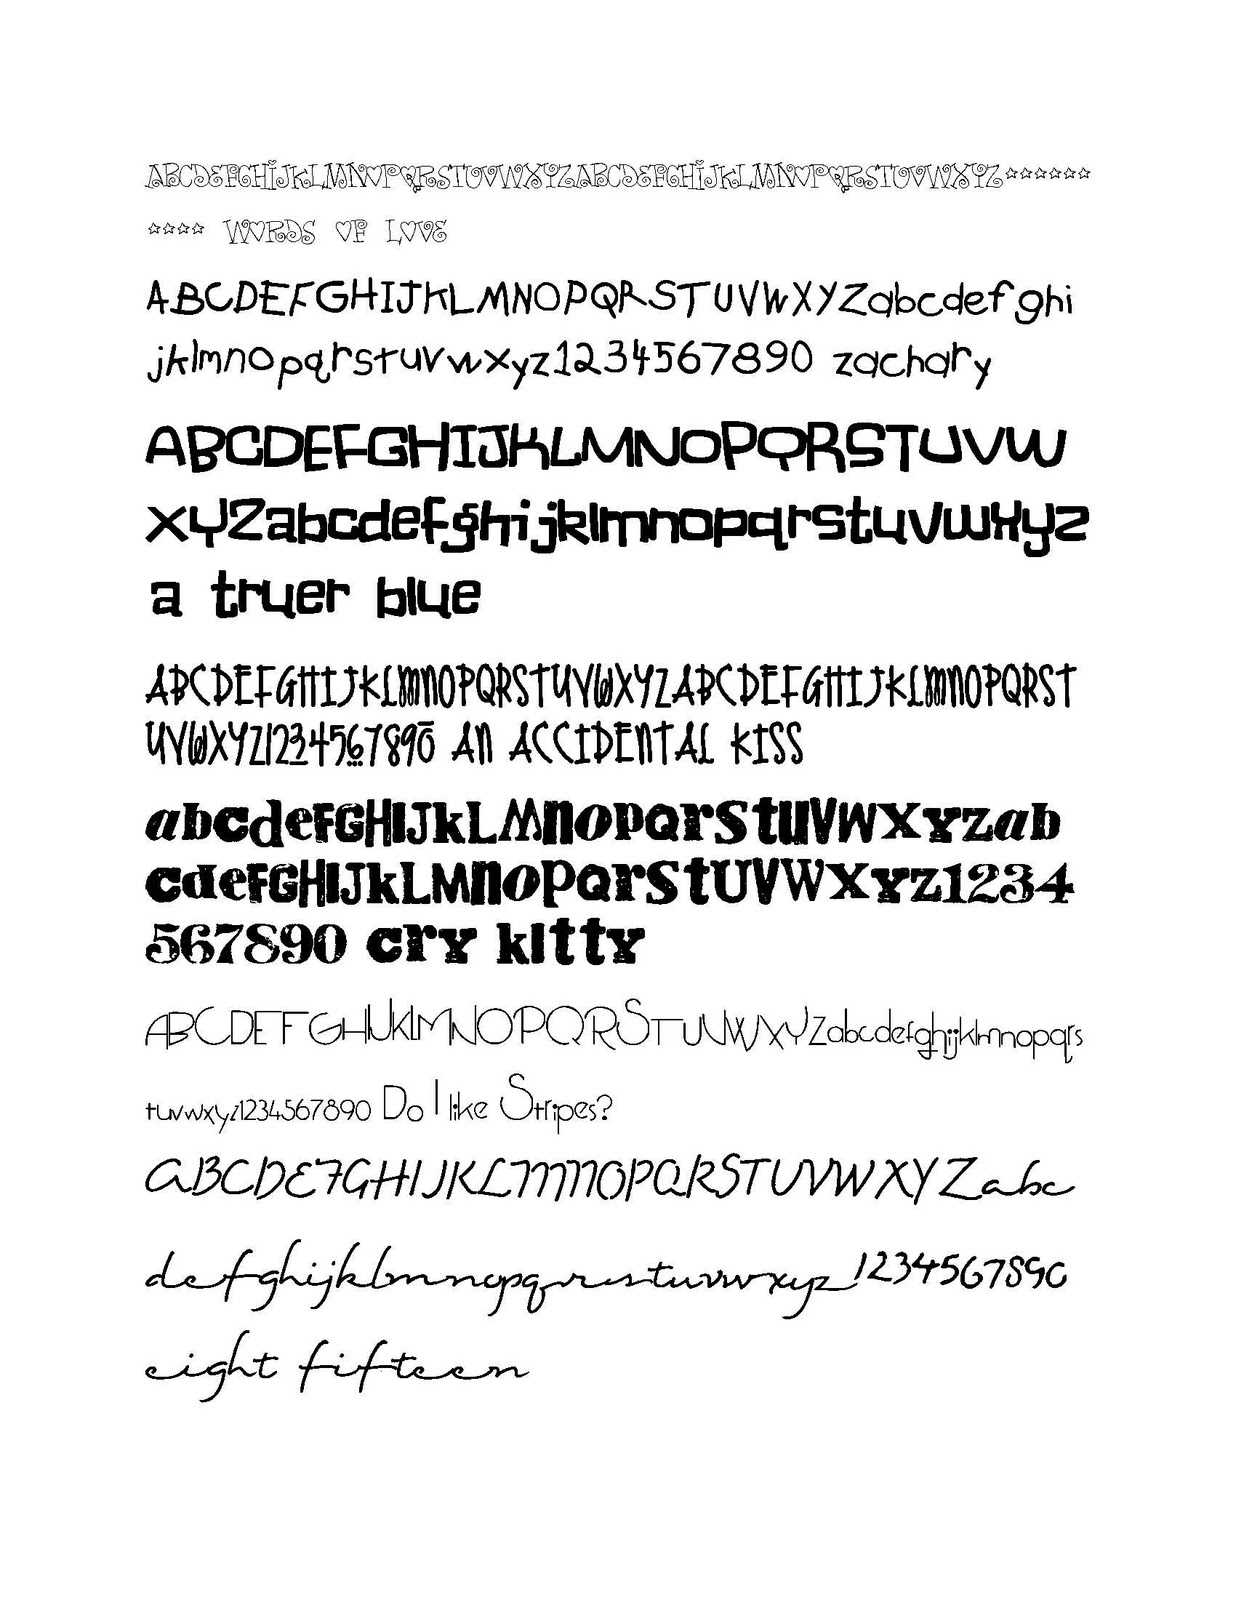 ABCDEFGHIJKLMNOPQRSTUVWXYZABCDEFGHIJKLMNOPQRSTUVWXYZ☆☆☆☆☆☆
☆☆☆☆ WORDS OF LOVE
ABCDEFGHIJKLMNOPQRSTUVWXYZabcdefghi
jklmnopqrstuvwxyz1234567890 zachary
ABCDEFGHIJKLMNOPQRSTUVW
XYZabcdefghijklmnopqrstuvwxyz
a truer blue
ABCDEFGHIJKLMNOPQRSTUVWXYZABCDEFGHIJKLMNOPQRST
UVWXYZ1234567890 AN ACCIDENTAL KISS
abcdeFGHIJkLMnopqrstUVWXYzab
cdeFGHIJkLMnopqrstUVWXYz1234
567890 cry kitty
ABCDEFGHIJKLMNOPQRSTUVWXYZabcdefghijklmnopqrs
tuvwxyz1234567890 Do I like Stripes?
ABCDEFGHIJKLMNOPQRSTUVWXYZabc
defghijklmnopqrstuvwxyz1234567890
eight fifteen